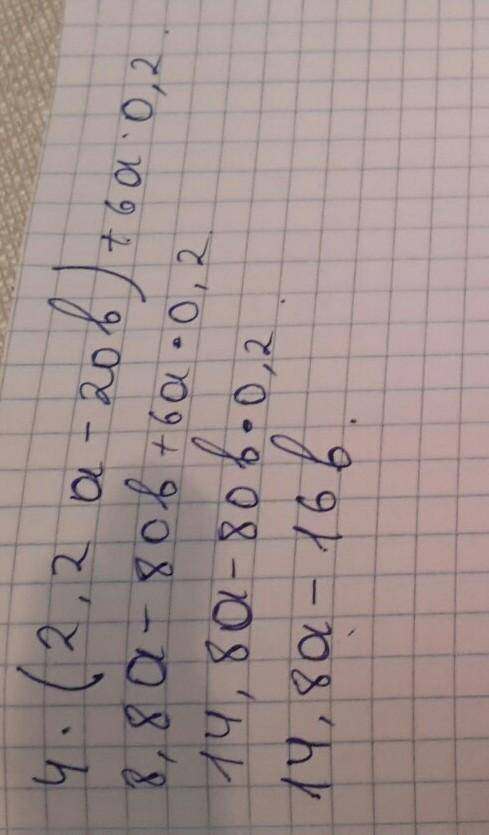 4·(2,2a-20b)+6a·0,2.
8,8a-80b+6a·0,2.
14,8a-80b·0,2.
14,8a-16b.